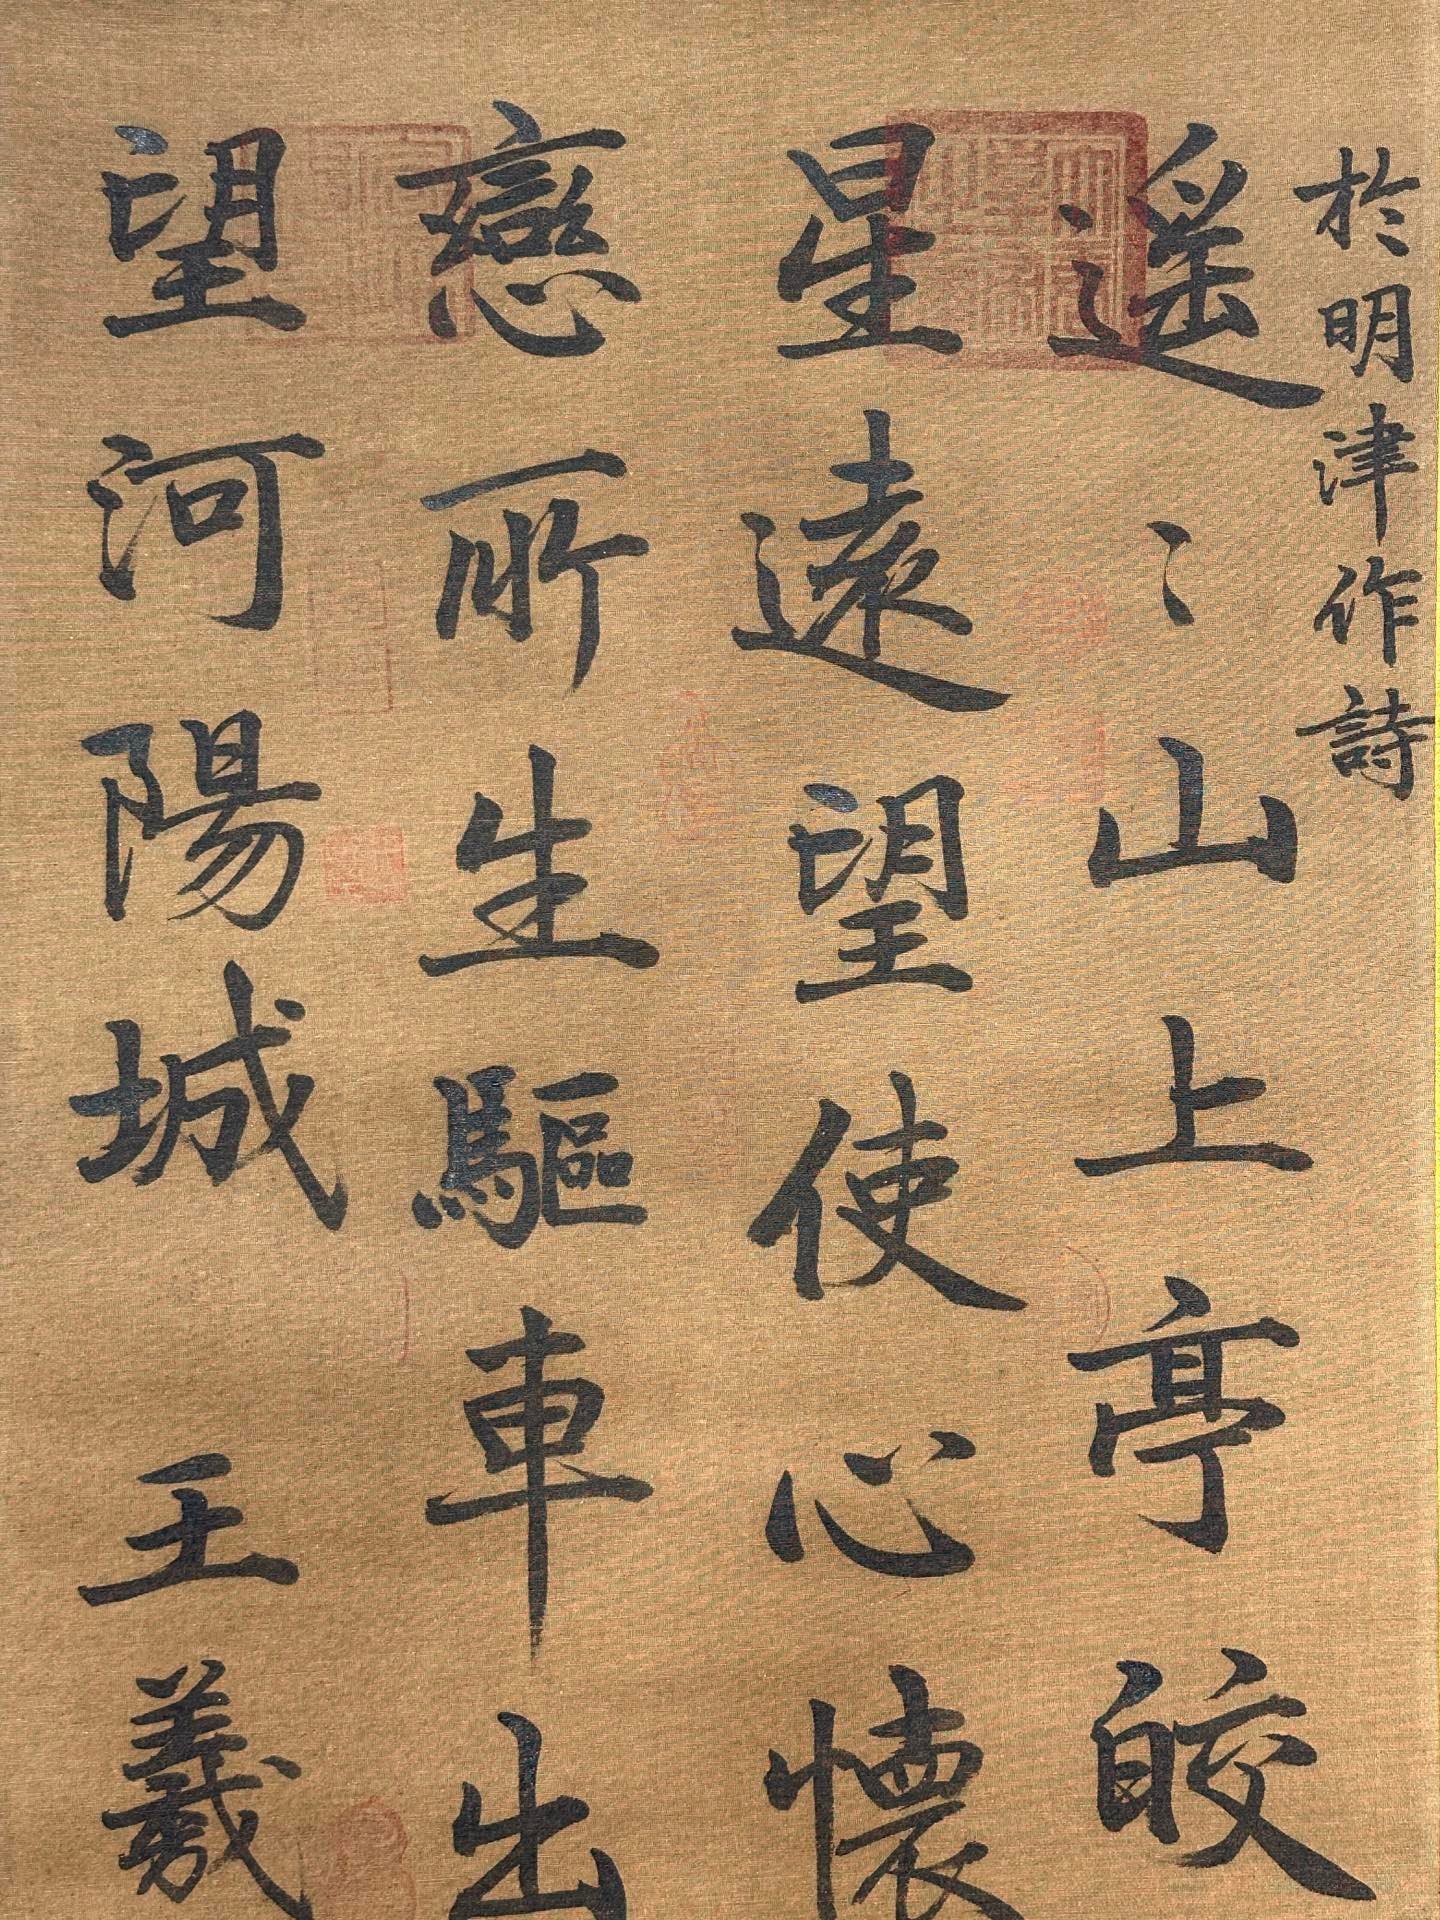 於明津作詩
遥〻山上亭皎
星遠望使心懷
戀所生驅車出
望河陽城 王羲